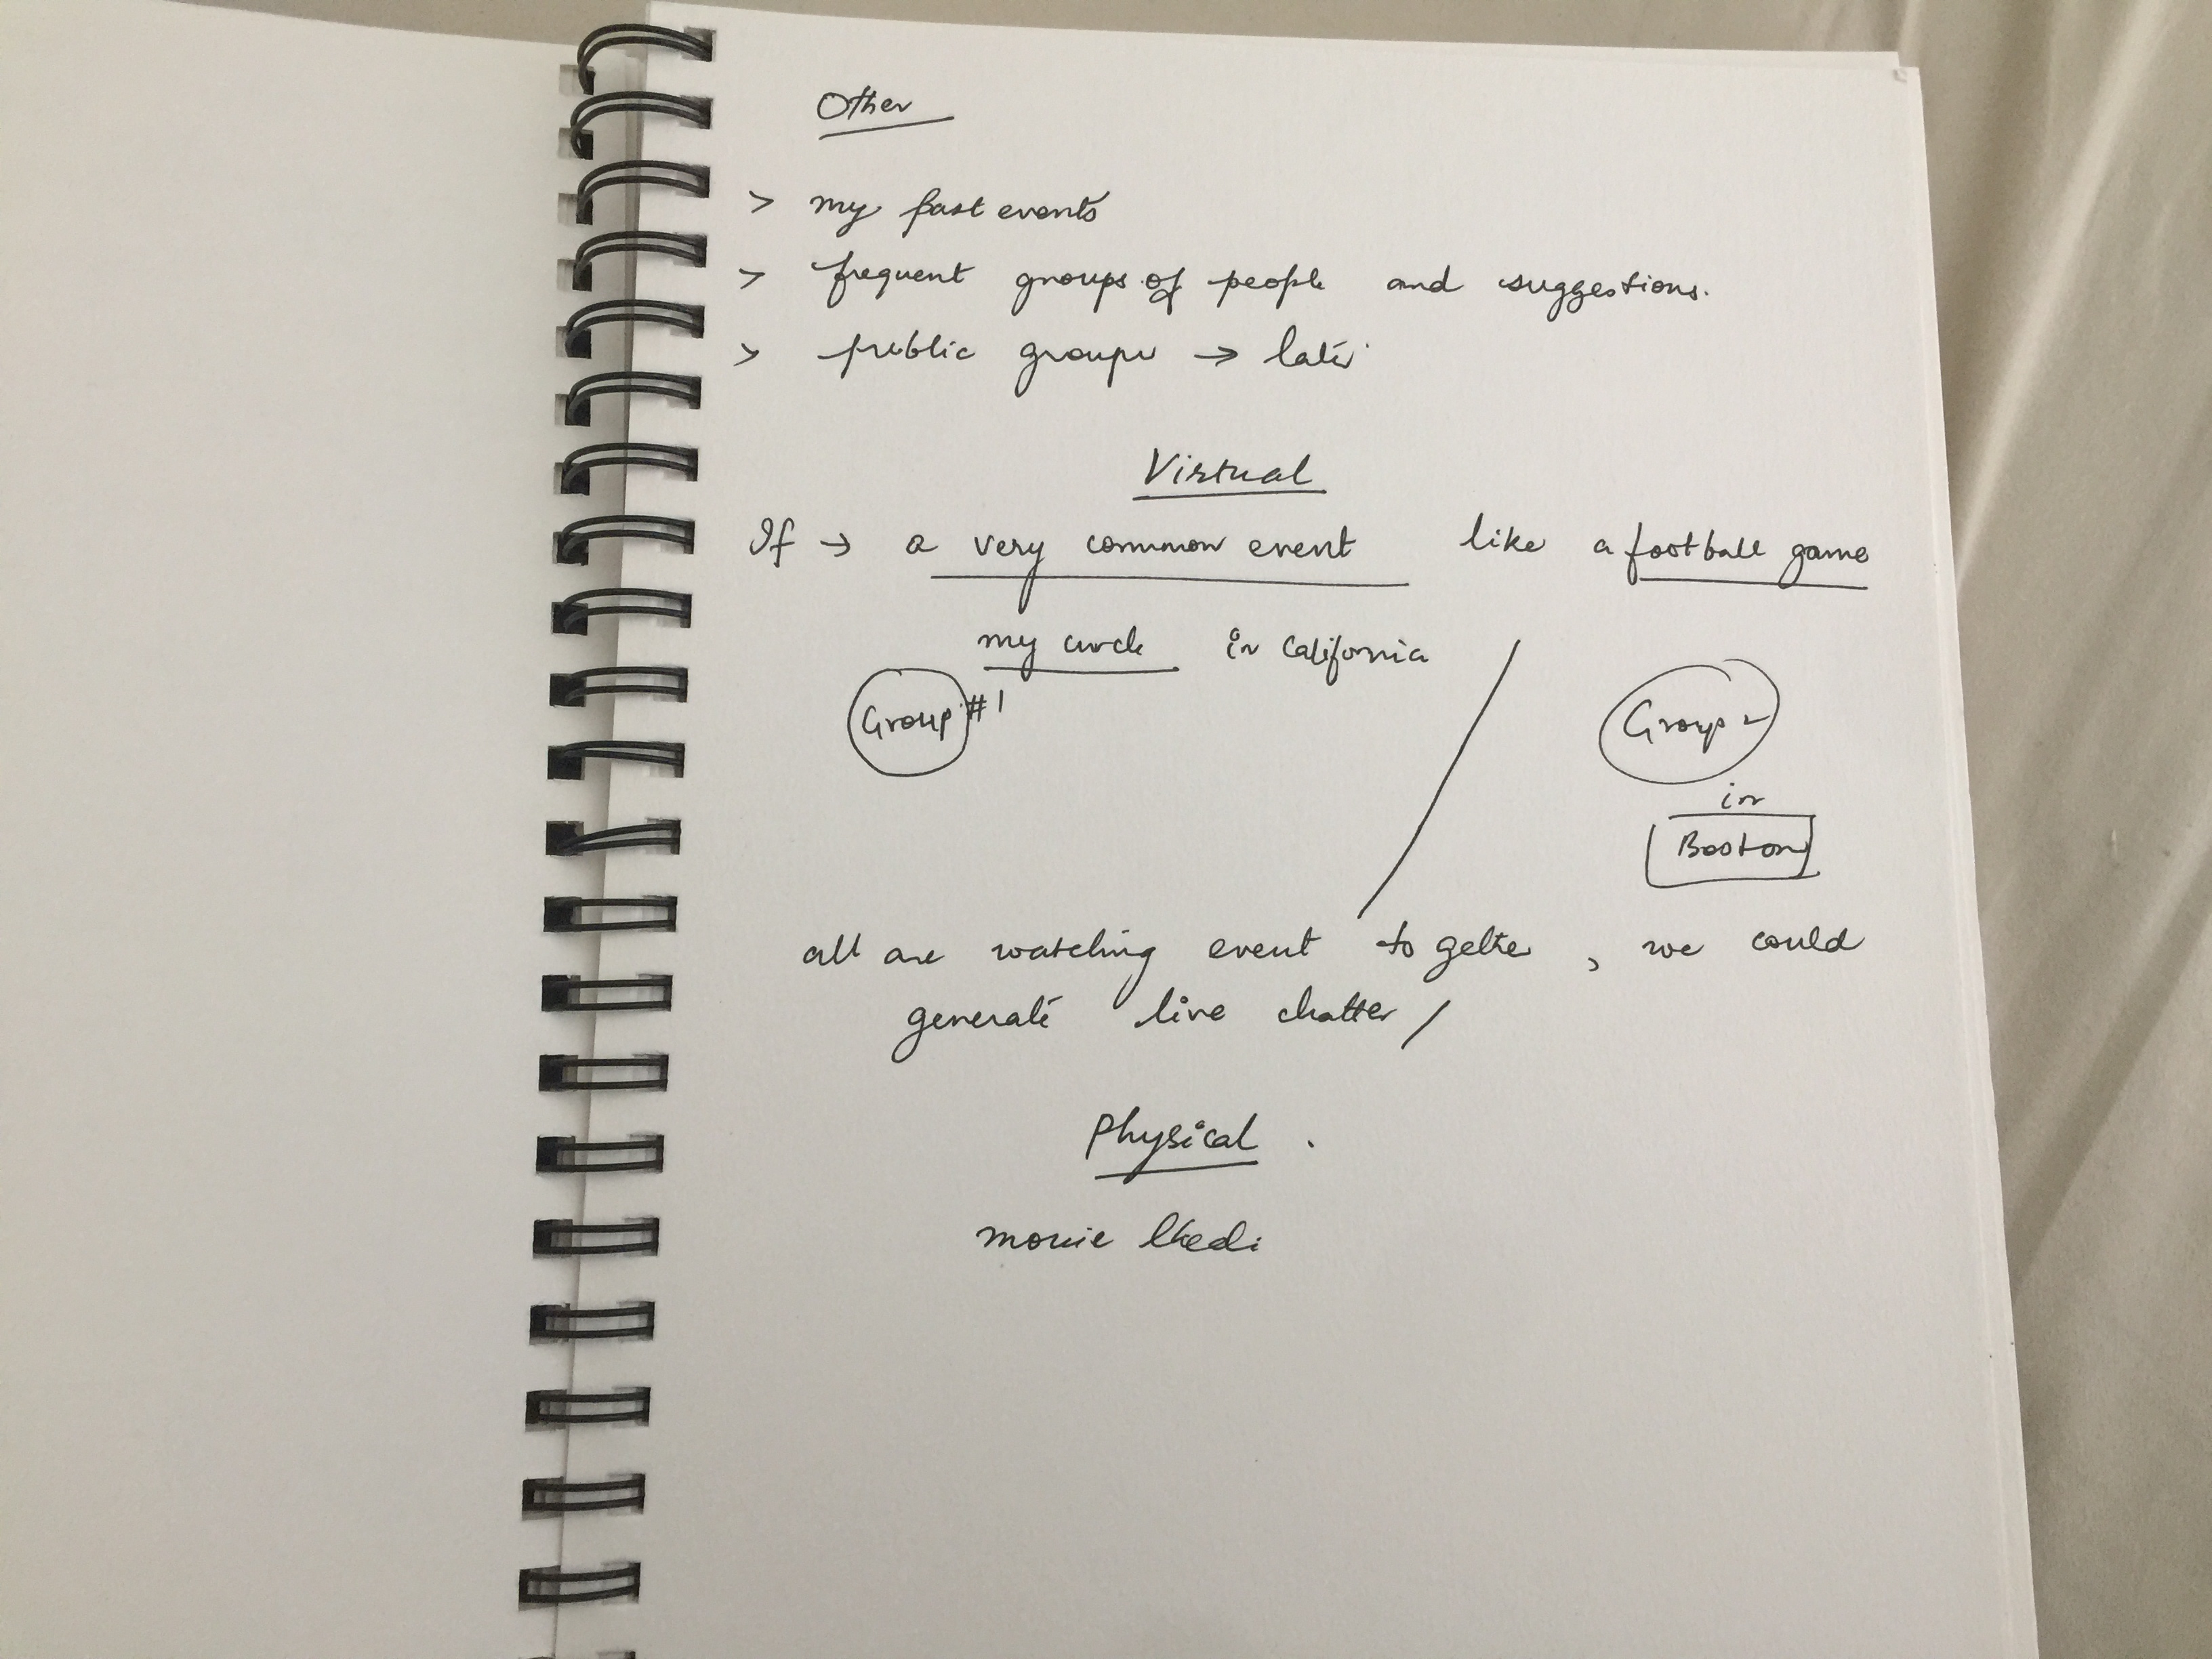 Other
> my past events
> frequent groups of people and suggestions.
> public groups → later
Virtual
If → a very common event like a football game
my circle in California
Group #1
Group 2
in
Boston
all are watching event to gether, we could
generate live chatter /
Physical.
movie